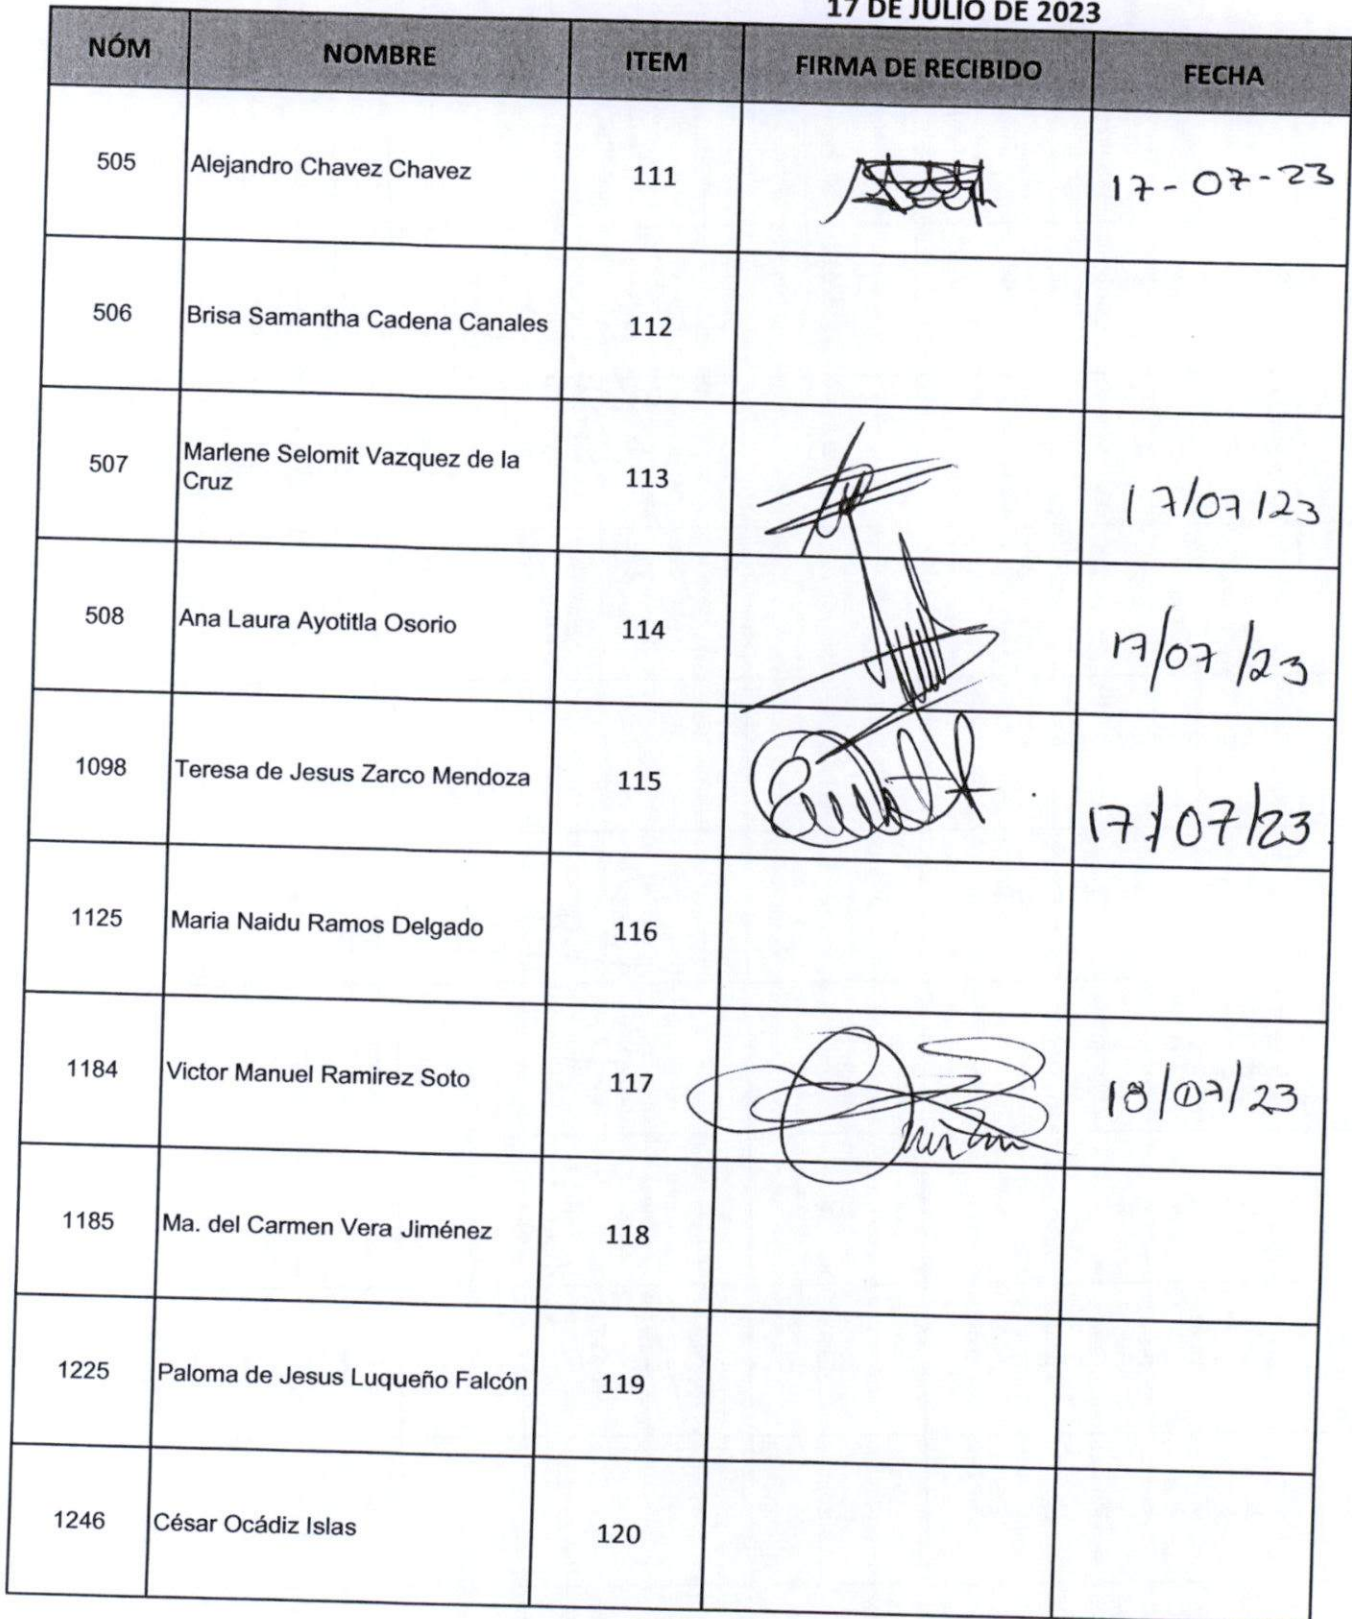 17 DE JULIO DE 2023
NÓM NOMBRE ITEM FIRMA DE RECIBIDO FECHA
505 Alejandro Chavez Chavez 111 17-07-23
506 Brisa Samantha Cadena Canales 112
507 Marlene Selomit Vazquez de la
Cruz 113 17/07/23
508 Ana Laura Ayotitla Osorio 114 17/07/23
1098 Teresa de Jesus Zarco Mendoza 115 17/07/23
1125 Maria Naidu Ramos Delgado 116
1184 Victor Manuel Ramirez Soto 117 18/07/23
1185 Ma. del Carmen Vera Jiménez 118
1225 Paloma de Jesus Luqueño Falcón 119
1246 César Ocádiz Islas 120